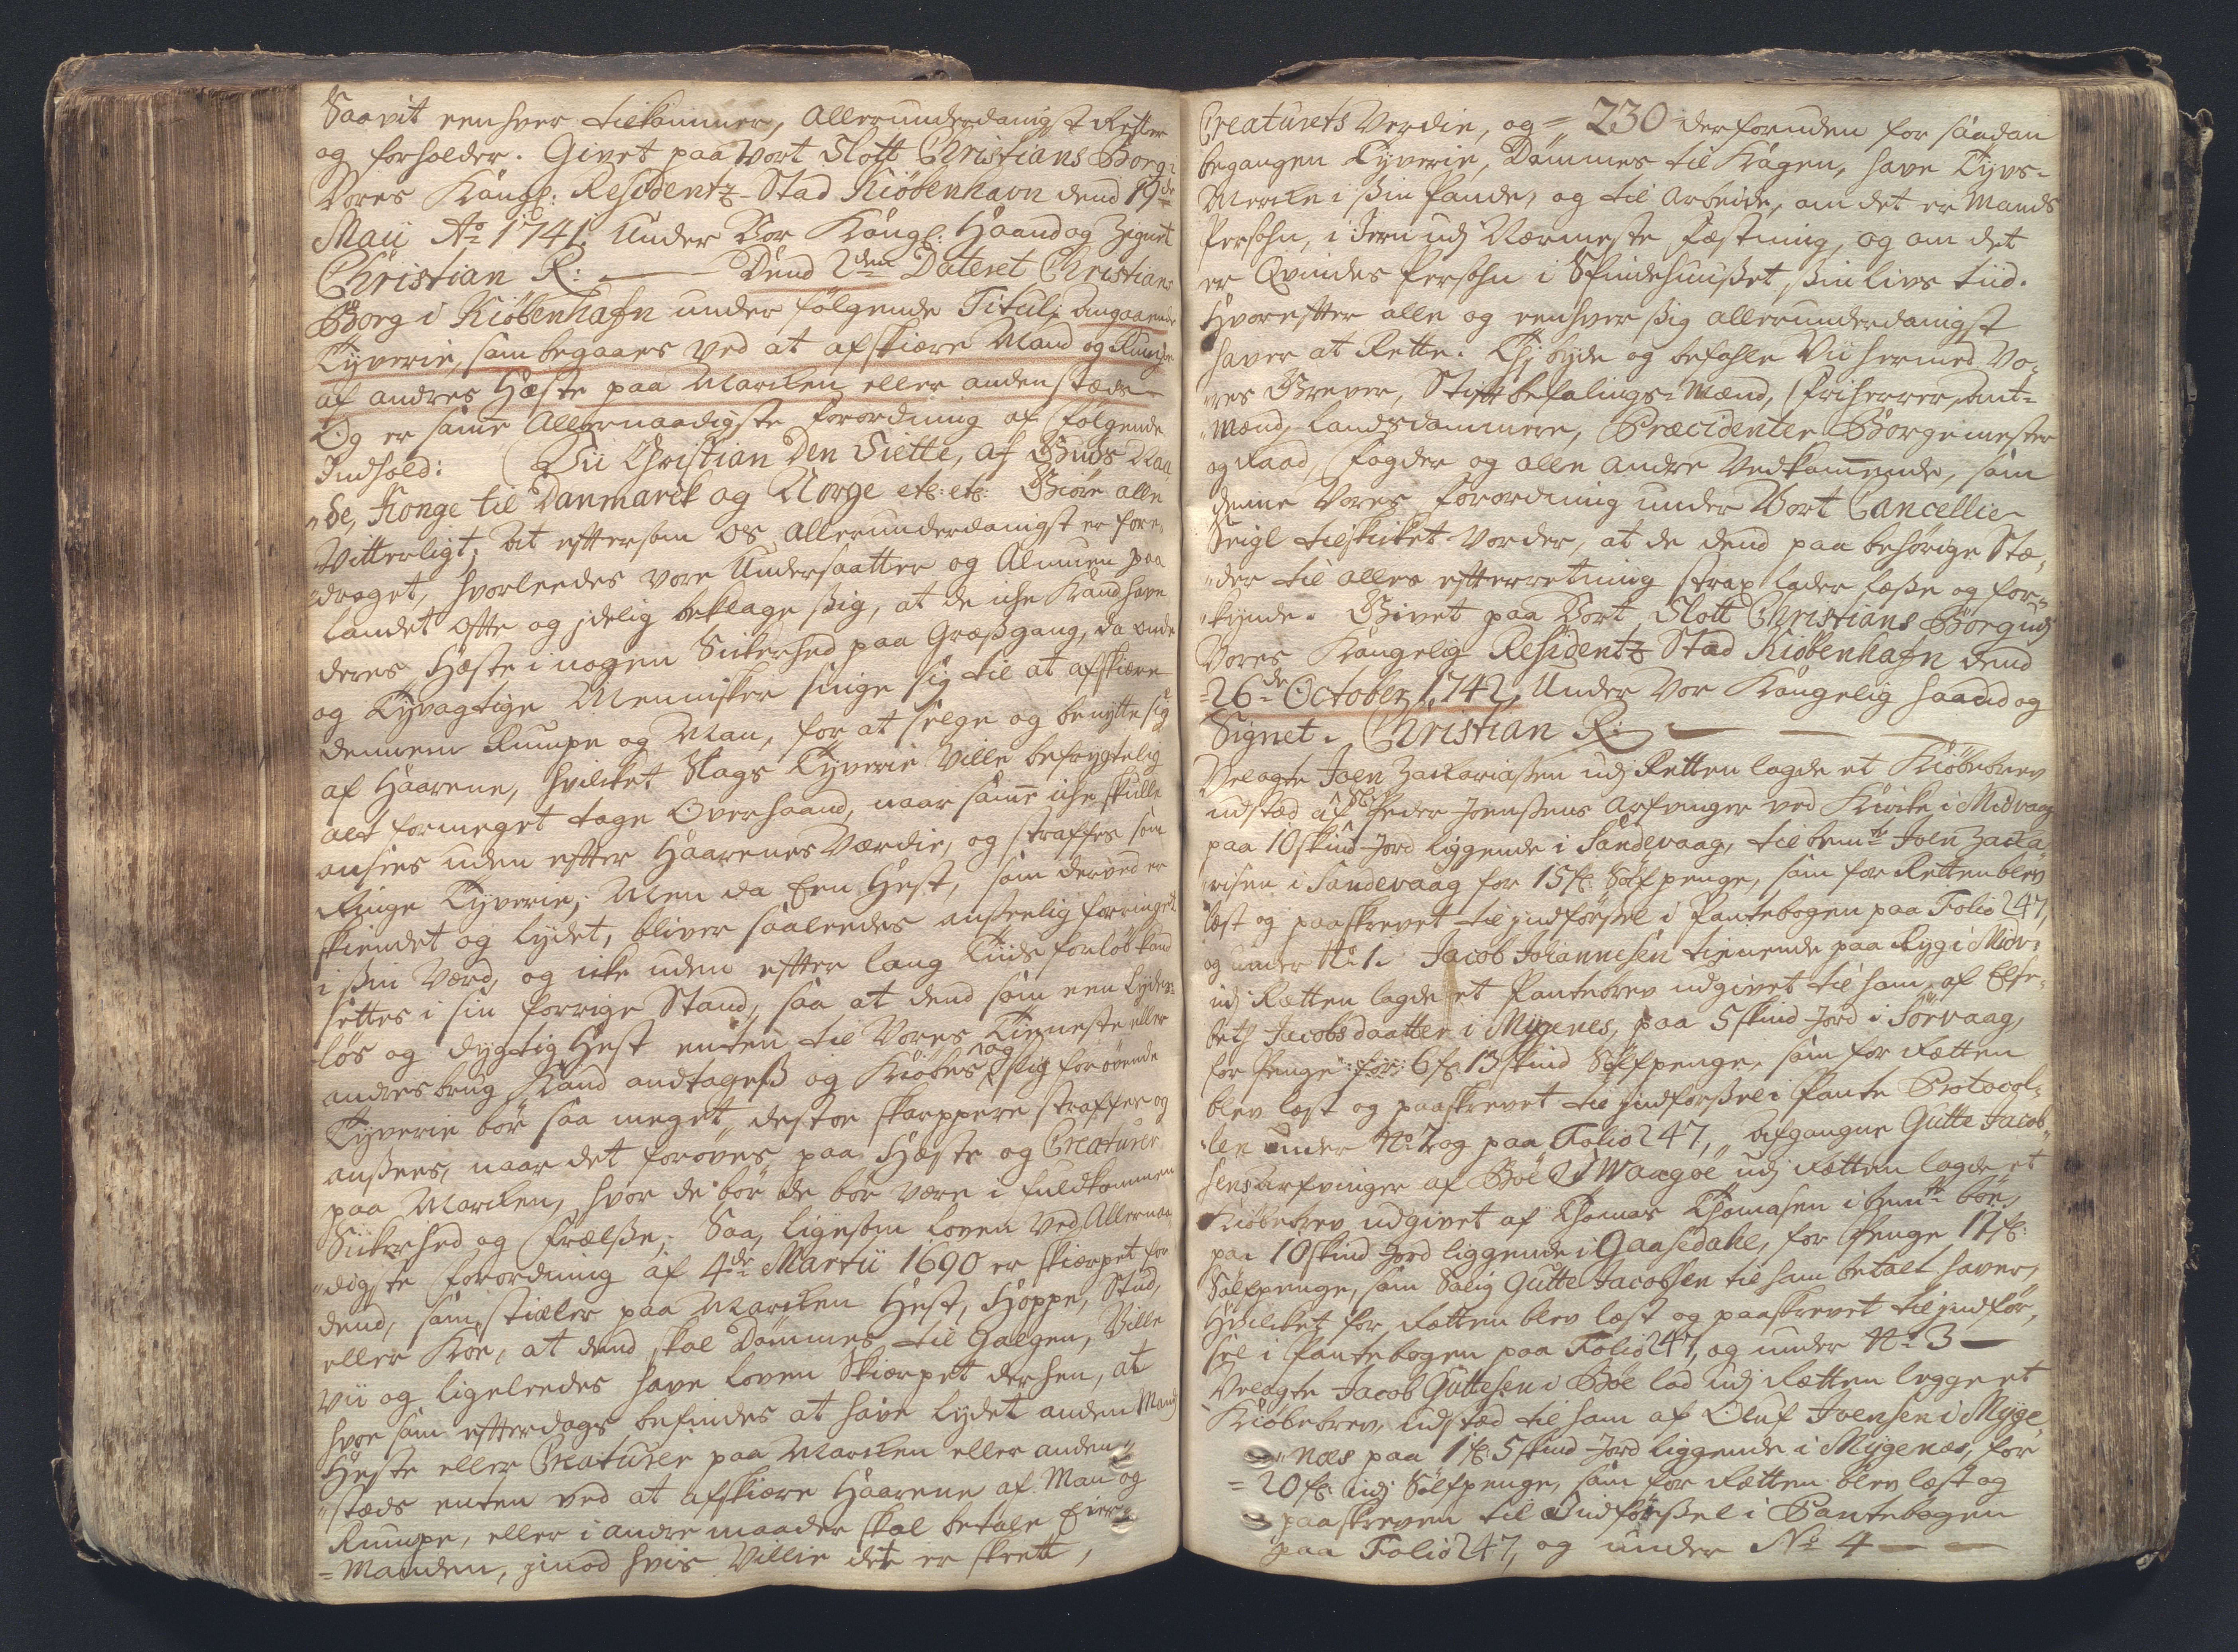 Saavit eenhver tilkommer, Allerunderdanigst Retter
og forholder. Givet paa vort Slott Christians Borg i
Vores Kongl: Residentz-Stad Kiøbenhavn dend 19de
Maii Ao 1741. Under Vor Kongl: Haand og Zignet
Christian R: Dend 2den Dateret Christians
Borg i Kiøbenhafn under følgende Titul, Angaaende
Tyverie, som begaaes ved at afskiære Mand og Rumpe
af andres Hæste paa Marcken eller andenstæds
Og er samme Allernaadigste Forordning af følgende
Indhold: Vii Christian den Siette, af Guds Naa„
„de, Konge til Danmarck og Norge etc: etc: Giøre alle
Vitterligt; At eftersom os allerunderdanigst er fore„
„draget, hvorleedes vore Undersaatter og Almuen paa
Landet ofte og jdelig beklage sig, at de iche kand have
deres Hæste i nogen Sickerhed paa Græsgang, da onde
og Tyvagtige Mennisker snige sig til at afskiære
dennem Rumpe og Man, for at selge og benytte sig
af Haarene, hvilcket Slags Tyverie ville befrygtelig
alt formeget tage Overhaand, naar samme iche skulle
ansees uden efter Haarenes Værdie, og straffes som
Ringe Tyverie; Men da Een Hest, som derved er
skiendet og lydet, bliver saaleedes anseelig forringet
i sin Værd, og icke uden efter lang Tiids forløb kand
settes i sin forrige Stand, saa at dend som een Lydes„
løs og dygtig Hest enten til Vores Tieneste eller
andres brug kand andtages og Kiøbes, og slig forøvende
Tyverie bør saa meget destoe skarppere straffes og
ansees, naar det forøves paa Hæste og Creaturer
paa Marcken, hvor de bør de bør være i fuldkommen
Sickerhed og Frælse; Saa, ligesom Loven ved Allernaa„
„digste Forordning af 4de Martii 1690 er skierpet for
dend, som stieler paa Marcken Hest, Hoppe, Stud,
eller Koe, at dend skal Dømmes til Galgen, Ville
Vii og ligeleedes have Loven Skierpet derhen, at
hvo som efterdags befindes at have Lydet anden Mands
Heste eller Creaturer paa Marcken eller anden„
„stæds enten ved at afskiære Haarene af Man og
Rumpe, eller i andre maader skal betale Eier„
=Manden, jmod hvis Villie det er skeett,
Creaturets Verdie, og = 230 derforuden for saadan
begangen Tyverie, Dømmes til Kagen, have Tyvs=
Mercke i sin Pande, og til Arbeide, om det er Mands
Persohn, i Jern udj Nærmeste Fæstning, og om det
er Qvindes Persohn i Spindehuuset, sin livs tiid.
Hvorefter alle og eenhver sig allerunderdanigst
haver at Rette. Thj byde og befahle Vii hermed Vo„
„res Grever, Stiftbefalings=Mænd, Friherrer, Amt=
„Mænd, Landsdommere, Præcidenter Borgemester
og Raad, Fogder og alle Andre Vedkommende, som
denne Vores Forordning under Vort Cancellie
Seigl tilskicket Vorder, at de dend paa behørige Stæ„
„der til alles efterretning strax lader læse og for„
„kynde. Givet paa Vort Slott Christians Borg udj
Vores Kongelig Residentz Stad Kiøbenhafn dend
26de October 1742, Under Vor Kongelig haand og
Signet. Christian R:
Velagte Joen Zackariasen udj Retten lagde et Kiøbebrev
udsted af Sl: Peder Joensens Arfvinger ved Kircke i Midvaag
paa 10 skind Jord liggende i Sandevaag, til bemte Joen Zacka„
risen i Sandevaag for 15 fl: Sølfpenge, som for Retten blev
læst og paaskrevet til jndførsel i Pantebogen paa Folio 247,
og under No 1. Jacob Johannesen tienende paa Ryg i Midv:
udj Rætten lagde et Pantebrev udgivet til ham af Else„
beth Jacobsdaatter i Mygenes, paa 5 skind Jord i Sørvaag,
for Penge: for: 6 fl: 13 skind Sølfpenge, som for Rætten
blev læst og paaskrevet til jndførsel i Pante Protocol„
„len under No 2 og paa Folio 247, Afgangne Gutte Jacob„
sens arfvinger af Bøe i Waagøe udj Rætten lagde et
Kiøbebrev udgivet af Thomas Thomasen i bemte bøe,
paa 10 skind Jord liggende i Gaasedahl, for Penge 17 fl:
Sølfpenge, som Salig Gutte Jacobsen til ham betalt haver,
Hvilcket for Rætten blev læst og paaskrevet til jndfør„
sel i Pantebogen paa Folio 247, og under No 3
Velagte Jacob Guttesen i Bøe lod udj Rætten legge et
Kiøbebrev, udsted til ham af Oluf Joensen i Myge„
„næs paa 1 fl: 5 skind Jord liggende i Mygenæs, for
=20 fl: udj Sølfpenge, som for Rætten blev læst og
paaskreven til Indførsel i Pantebogen
paa Folio 247, og under No 4